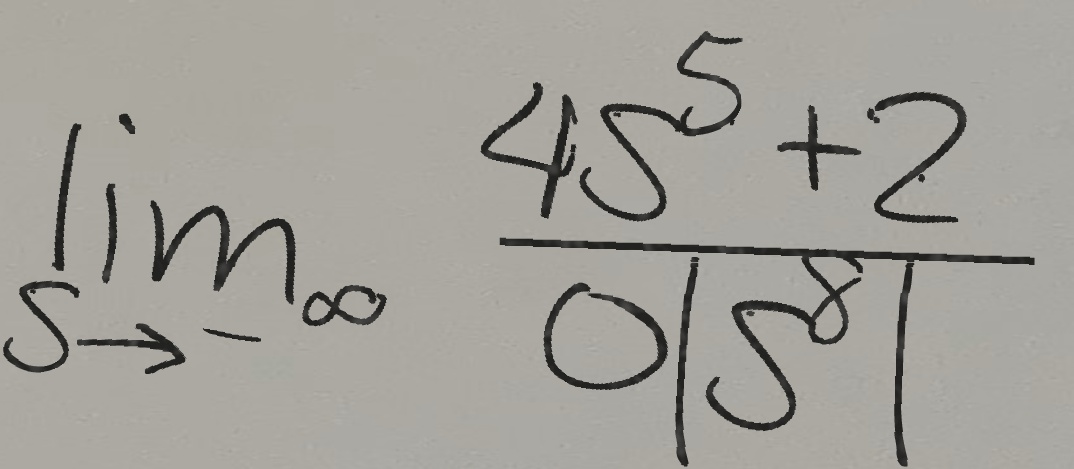 lim s→-∞ (4s^5+2)/(0|s^8|)